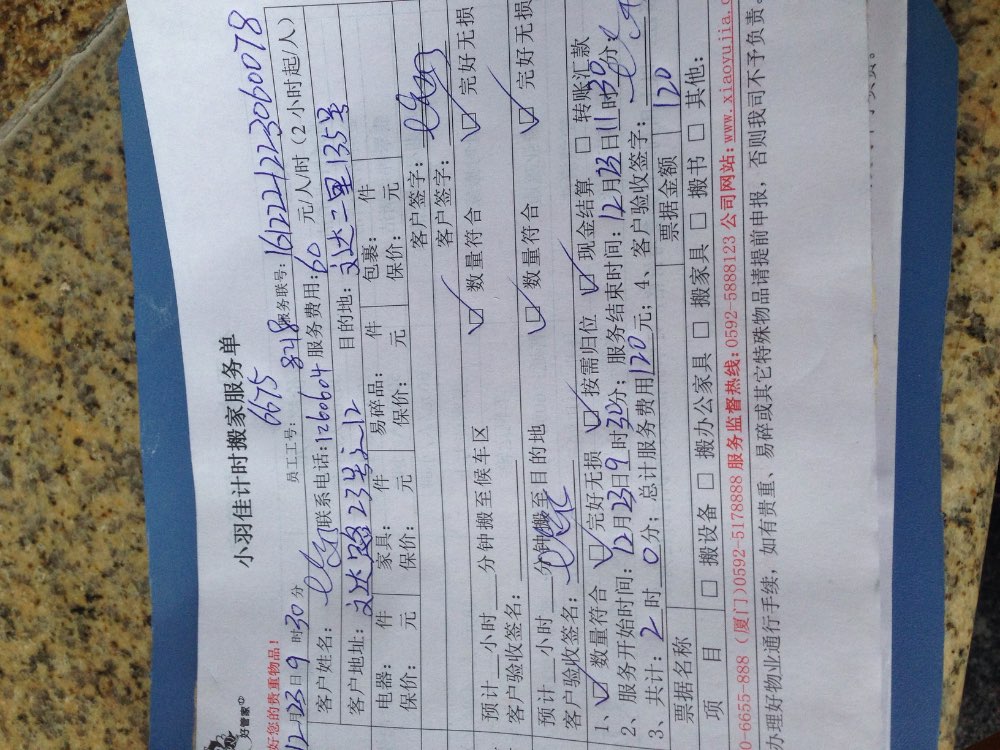 小羽佳计时搬家服务单
好管家
好您的贵重物品! 员工工号: 6675 848 服务联号: 161222122230600078
12月23日9时30分
客户姓名: 联系电话: 1260604 服务费用: 60 元/人/时 (2小时起/人)
客户地址: 文达路23号之12 目的地: 文达二里135号
电器: 件 家具: 件 易碎品: 件 包裹: 件
保价: 元 保价: 元 保价: 元 保价: 元
客户签字:
客户签字:
预计 小时 分钟搬至候车区 数量符合 完好无损
客户验收签名:
预计 小时 分钟搬至目的地 数量符合 完好无损
客户验收签名:
1、 数量符合 完好无损 按需归位 现金结算 转账汇款
2、服务开始时间: 12月23日9时30分; 服务结束时间: 12月23日11时30分
3、共计: 2时0分; 总计服务费用120元; 4、客户验收签字:
票据名称 票据金额 120
项目 搬设备 搬办公家具 搬家具 搬书 其他:
0-6655-888 (厦门)0592-5178888 服务监督热线: 0592-5888123 公司网站: www.xiaoyujia.c
办理好物业通行手续, 如有贵重、易碎或其它特殊物品请提前申报, 否则我司不予负责。